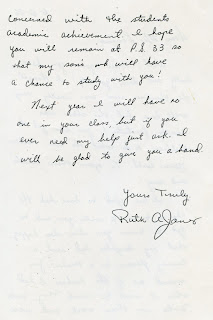 concerned with the students
academic achievement I hope
you will remain at P.S. 33 so
that my son's will have
a chance to study with you!
Next year I will have no
one in your class, but if you
ever need my help just ask. I
will be glad to give you a hand.
Yours Truly
Ruth A. Jones